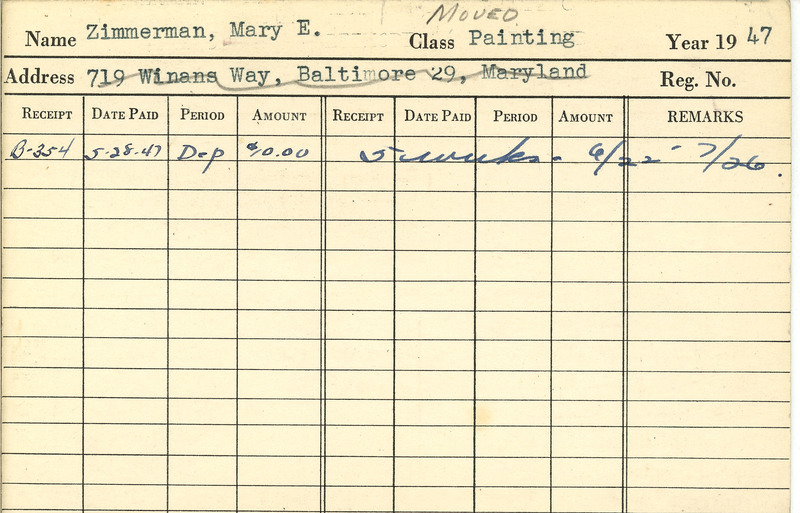 MOVED
Name Zimmerman, Mary E. Class Painting Year 19 47
Address 719 Winans Way, Baltimore 29, Maryland Reg. No.
RECEIPT DATE PAID PERIOD AMOUNT RECEIPT DATE PAID PERIOD AMOUNT REMARKS
B-354 5-28-47 Dep $10.00 5 weeks - 6/22 - 7/26.